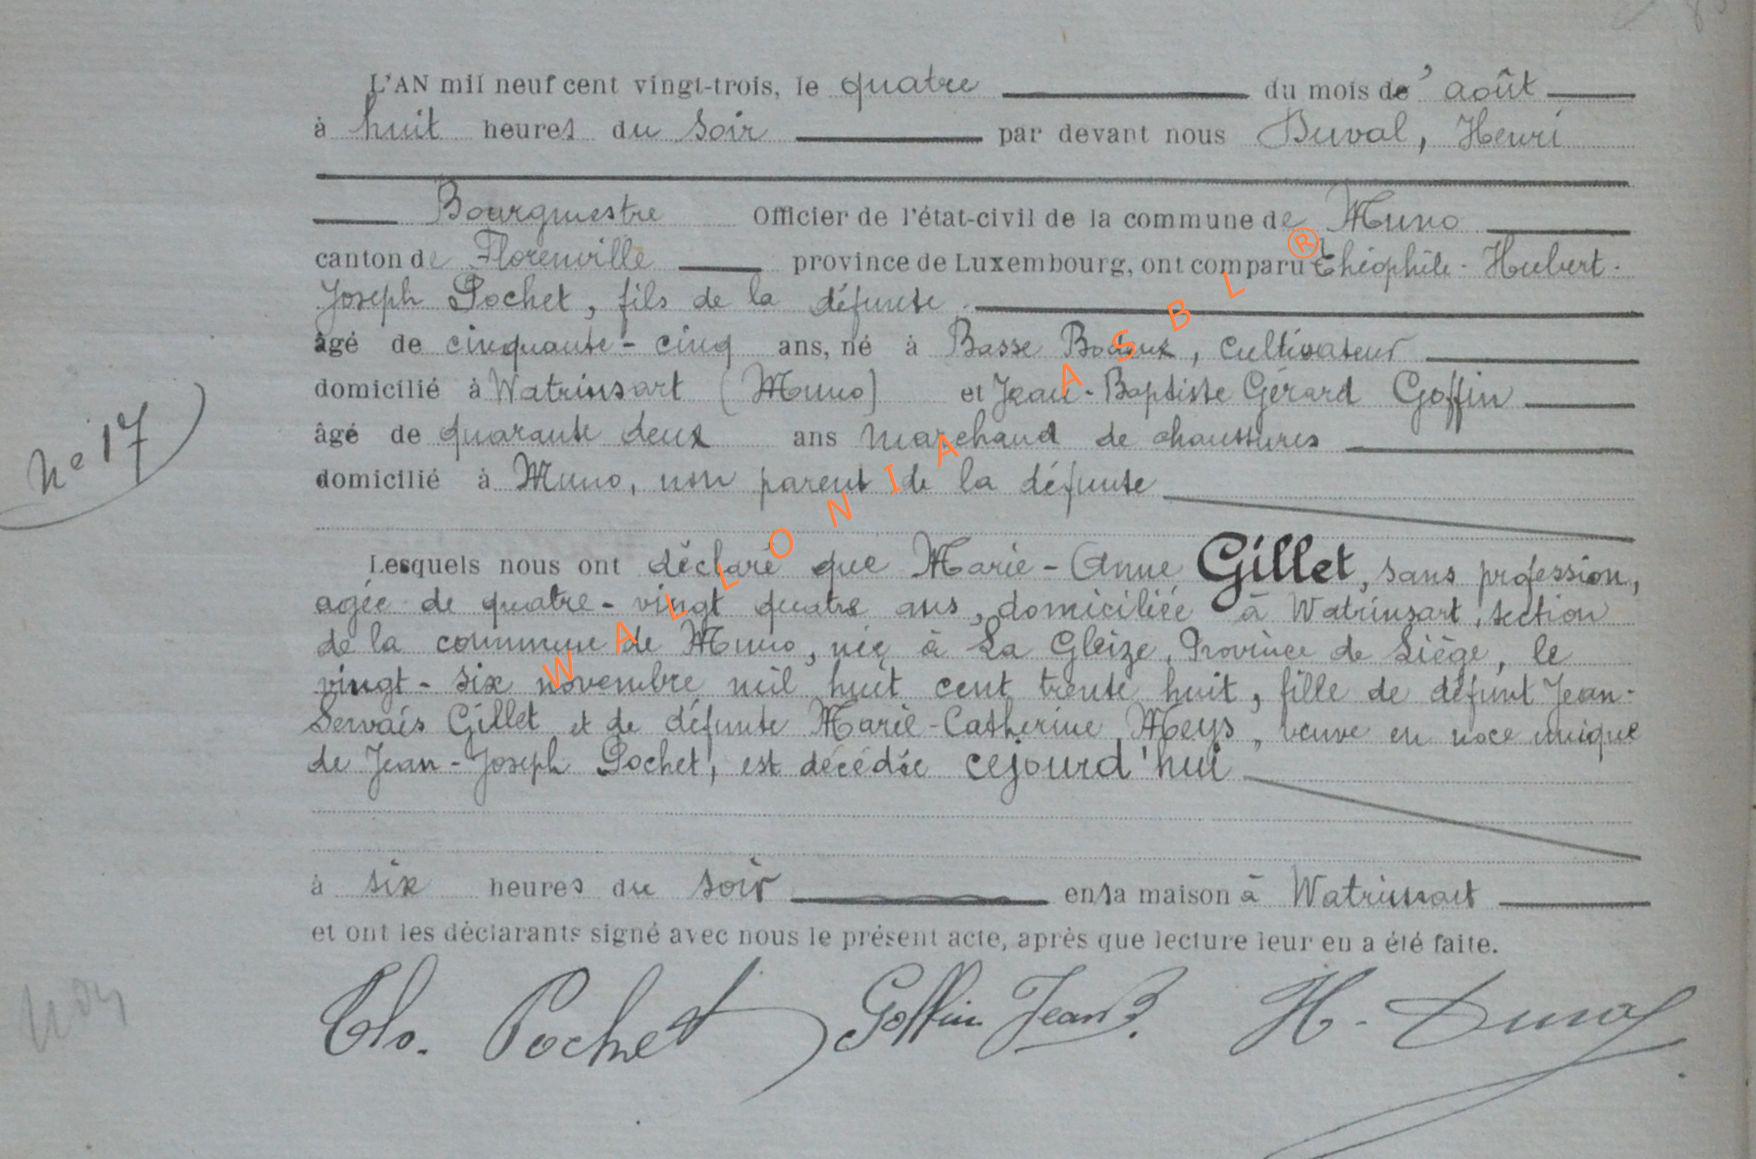 L'AN mil neuf cent vingt-trois, le quatre du mois de août
à huit heures du soir par devant nous Duval, Henri
Bourgmestre Officier de l'état-civil de la commune de Muno
canton de Florenville province de Luxembourg, ont comparu Théophile-Hubert-
Joseph Pochet, fils de la défunte
âgé de cinquante-cinq ans, né à Basse Bodeux, cultivateur
domicilié à Watrinsart (Muno) et Jean-Baptiste Gérard Goffin
âgé de quarante deux ans marchand de chaussures
domicilié à Muno, non parent de la défunte
N° 17
Lesquels nous ont déclaré que Marie-Anne Gillet, sans profession,
agée de quatre-vingt quatre ans, domiciliée à Watrinsart, section
de la commune de Muno, née à La Gleize, Province de Liège, le
vingt-six novembre mil huit cent trente huit, fille de défunt Jean-
Servais Gillet et de défunte Marie-Catherine Meys, veuve en noce unique
de Jean-Joseph Pochet, est décédée cejourd'hui
à six heures du soir en sa maison à Watrinsart
et ont les déclarants signé avec nous le présent acte, après que lecture leur en a été faite.
Th. Pochet Goffin Jean B. H. Duval
WALLONIA ASBL ®